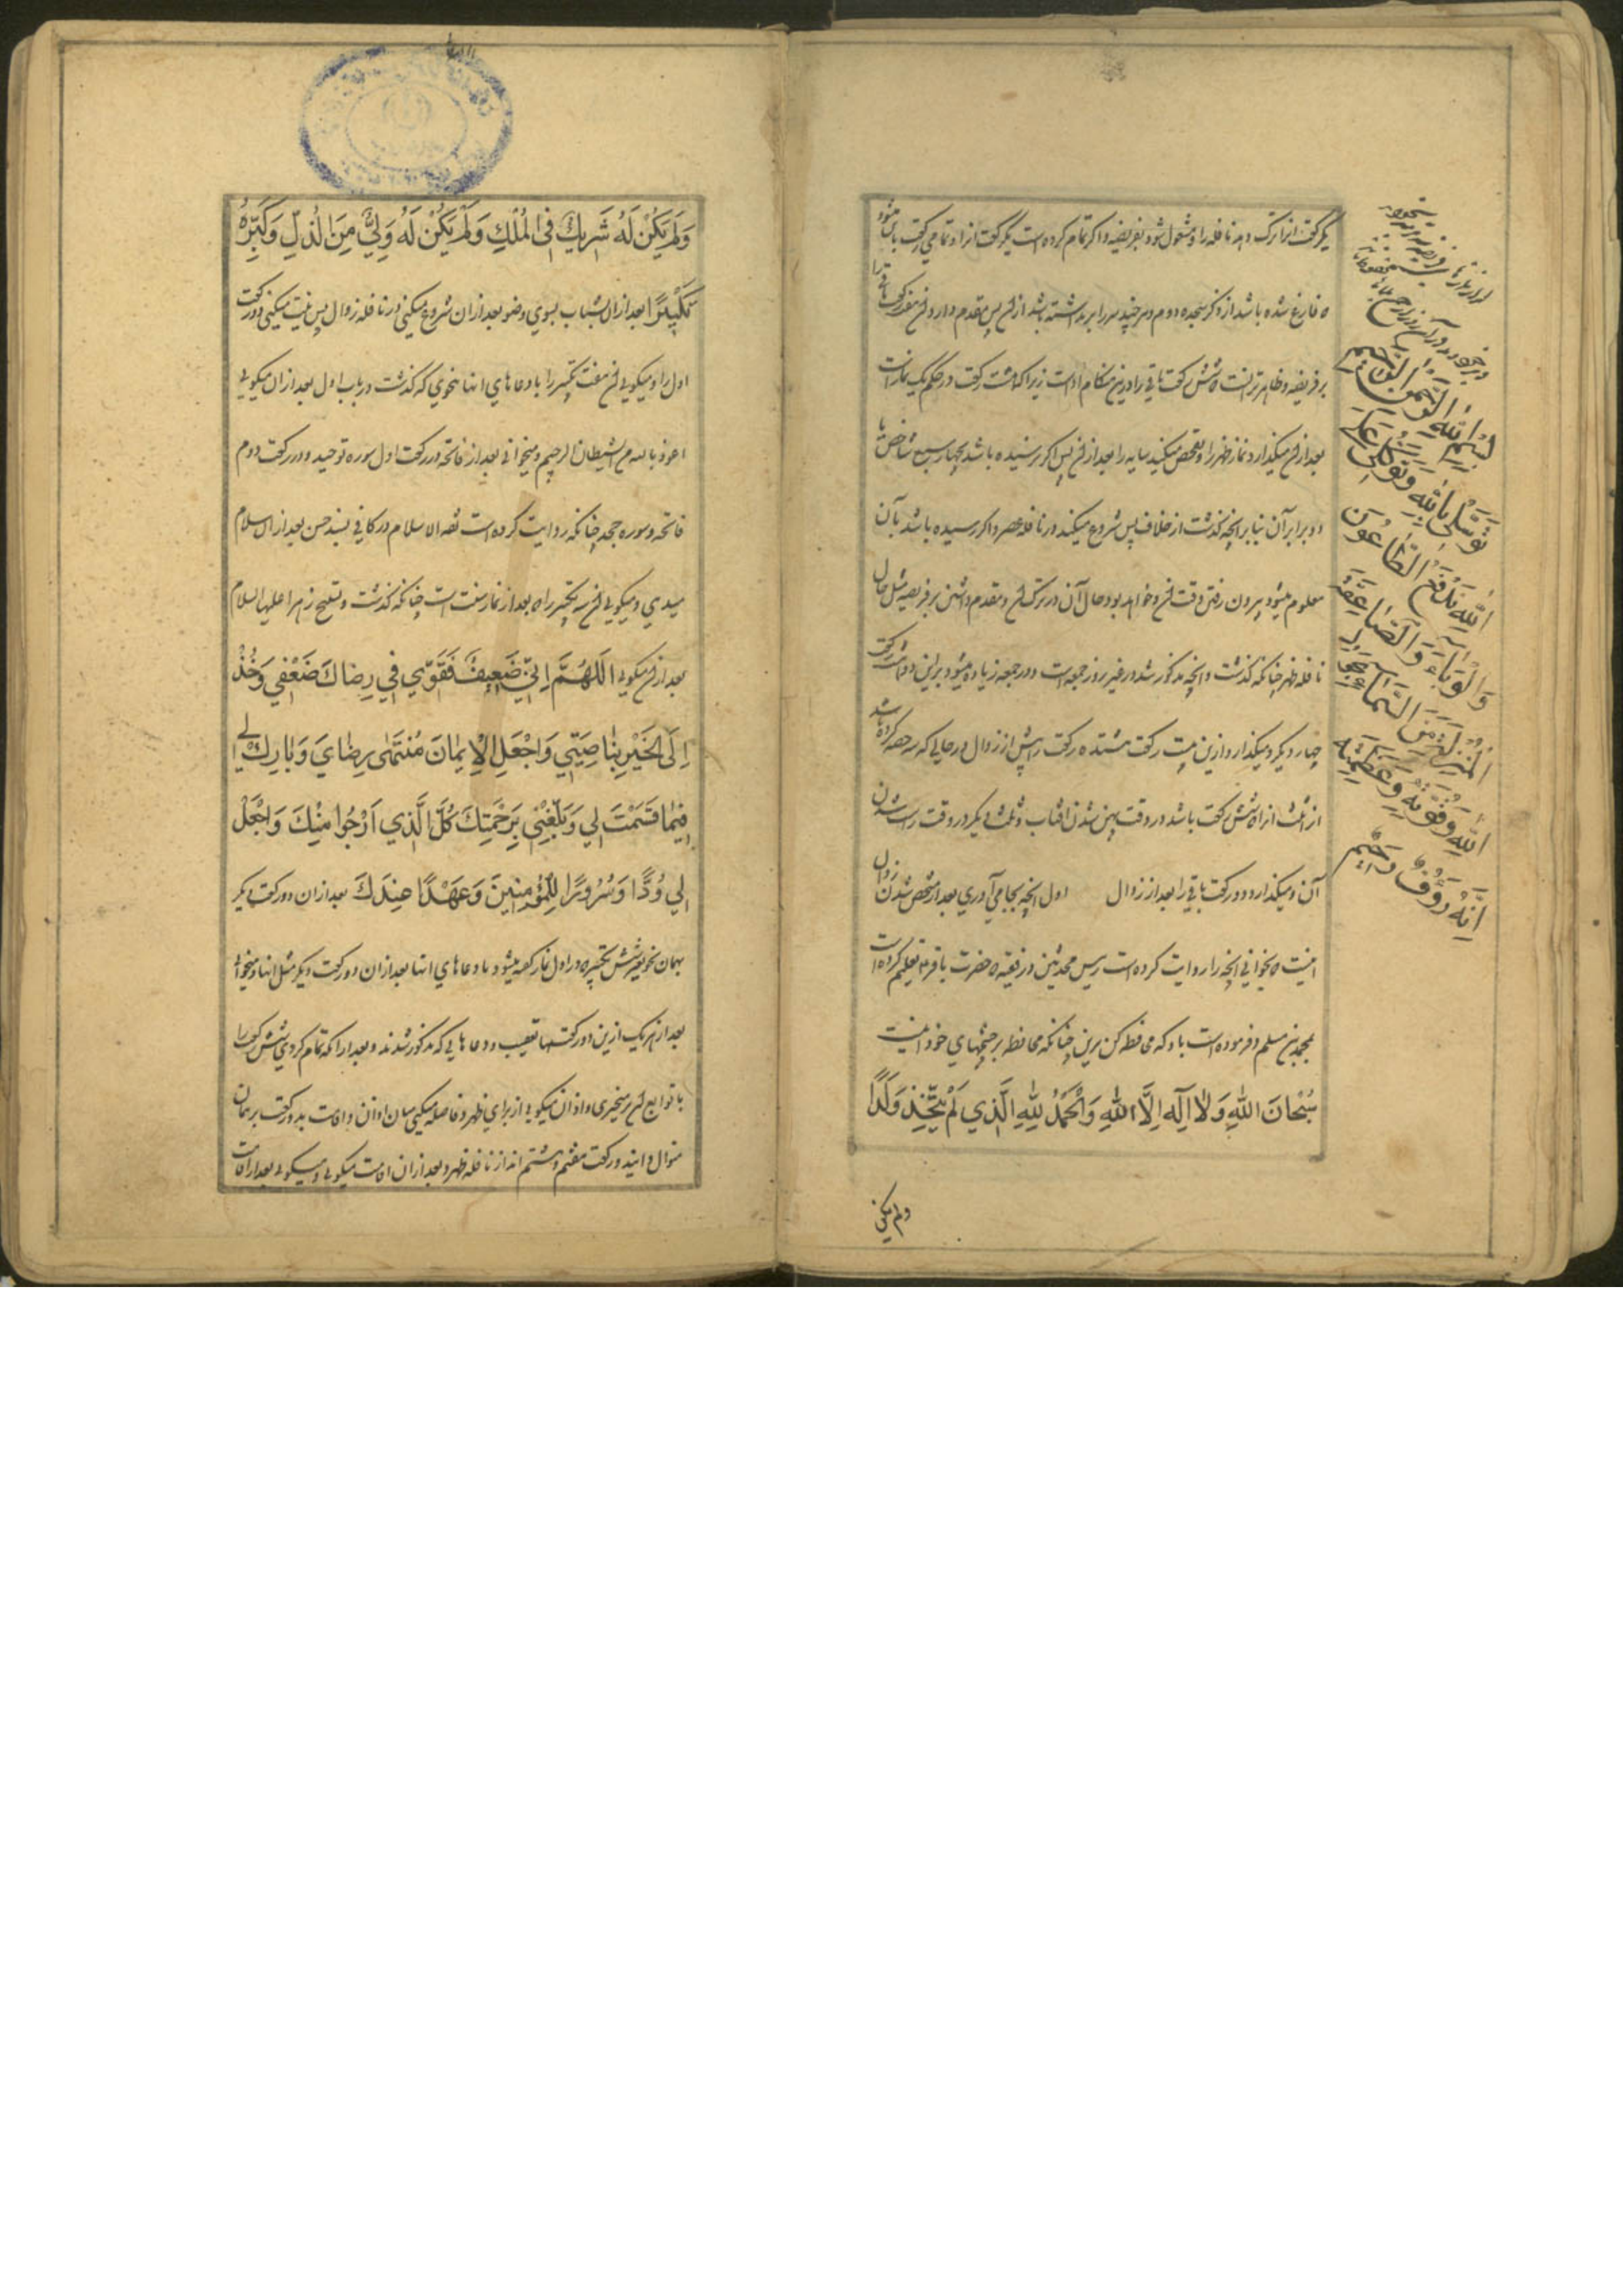 یکرکعت انرا ترک دهد نافله را و مشغول شود بفریضه و اکر تمام کرده است یکرکعت انرا و تمامی رکعت باینکه
ه فارغ شده باشد از ذکر سجده دوم و هر چند سر را بر نداشته باشد از ان پس مقدم دارد ان رکعت
بر فریضه و ظاهر تر انست ه شش رکعت باقی را درین هنکام ادا است زیرا که هشت رکعت در حکم یک نماز است
بعد از ان میکذارد نماز ظهر را و تفحص میکنید سایه را بعد از ان پس اکر رسیده باشد بچهار سبع شاخص یا
دو برابر آن بنا بر انچه کذشت از خلاف پس شروع میکند در نافله عصر و اکر رسیده باشد بآن
معلوم میشود بیرون رفتن وقت ان و خواهد بود حال آن در ترک ان و مقدم داشتن بر فریضه مثل حال
نافله ظهر چنانکه کذشت و انچه مذکور شد در غیر روز جمعه است و در جمعه زیاده میشود برین دو هشت رکعت
چهار دیکر و میکذارد ازین بیست رکعت هشتده رکعت را پیش از زوال در حالی که سه حصه کرده باشد
از ثلث انرا ه شش رکعت باشد در وقت پهن شدن افتاب و ثلث دیکر در وقت راست شدن
آن و میکذارد دو رکعت باقی را بعد از زوال اول انچه بجا می آوری بعد از مشخص شدن زوال
اینست ه بخوانی انچه را روایت کرده است رییس محدثین در فقیه ه حضرت باقر ع تعلیم کرده است
بمحمد بن مسلم و فرموده است باو که محافظه کن برین چنانکه محافظه بر چشمهای خود اینست
سُبْحانَ اللهِ وَلا اِلَهَ اِلَّا اللهُ وَالْحَمْدُ لِلّهِ الَّذي لَمْ يَتَّخِذْ وَلَدًا
ولم یکن
بِسْمِ اللهِ الرَّحْمنِ الرَّحيمِ
تَوَسَّلي بِاللهِ وَتَوَكُّلي عَلَى
اللهِ نَدْفَعُ الطّاعُونَ
وَالْوَباءَ وَالْقَضاءَ
مِنَ السَّماءِ
اللهِ وَقُوَّتِهِ وَعَظَمَتِهِ
اِنَّهُ رَؤُفٌ رَحيمٌ
وَلَمْ يَكُنْ لَهُ شَريكٌ فِي الْمُلْكِ وَلَمْ يَكُنْ لَهُ وَلِيٌّ مِنَ الذُّلِّ وَكَبِّرْهُ
تَكْبيرًا بعد از ان بشتاب بسوی وضو بعد از ان شروع میکنی در نافله زوال پس نیت میکنی دو رکعت
اول را و میکویی ان هفت تکبیر را با دعاهای انها بنحوی که کذشت در باب اول بعد از ان میکویی
اعوذ بالله من الشیطان الرجیم و میخوانی بعد از فاتحه در رکعت اول سوره توحید و در رکعت دوم
فاتحه و سوره جحد چنانکه روایت کرده است ثقه الاسلام در کافی بسند حسن بعد از ان سلام
میدی و میکویی ان سه تکبیر را ه بعد از نماز سنت است چنانکه کذشت و تسبیح زهرا علیها السلام
بعد از ان میکویی اَللّهُمَّ اِنّي ضَعيفٌ فَقَوِّني في رِضاكَ ضَعْفي وَخُذْ
اِلَى الْخَيْرِ بِناصِيَتي وَاجْعَلِ الْاِيمانَ مُنْتَهى رِضايَ وَبارِكْ لي
فيما قَسَمْتَ لي وَبَلِّغْني بِرَحْمَتِكَ كُلَّ الَّذي اَرْجُوا مِنْكَ وَاجْعَلْ
لي وُدًّا وَسُرُورًا لِلْمُؤْمِنينَ وَعَهْدًا عِنْدَكَ بعد از ان دو رکعت دیکر
بهمان نحو بغیر شش تکبیر ه در اول نماز کفته میشود با دعاهای انها بعد از ان دو رکعت دیکر مثل انها و میخوانی
بعد از هر یک ازین دو رکعتها تعقیب و دعاهایی که مذکور شدند و بعد از انکه تمام کردی شش رکعت را
با توابع ان برمیخیزی و اذان میکویی از برای ظهر و فاصله میکنی میان اذان و اقامت بدو رکعت بر همان
منوال و ایندو رکعت هفتم و هشتم اند از نافله ظهر و بعد از ان اقامت میکویی و میکویی بعد از اقامت